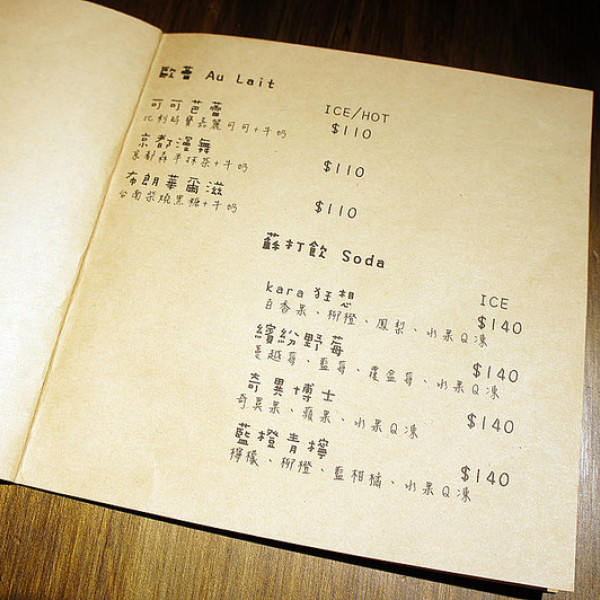 歐蕾 Au Lait
ICE/HOT
可可芭蕾 $110
比利時寶嘉麗可可+牛奶
京都漫舞 $110
京都森半抹茶+牛奶
布朗華爾滋 $110
台南柴燒黑糖+牛奶
蘇打飲 Soda
ICE
kara狂想 $140
百香果、柳橙、鳳梨、水果Q凍
繽紛野莓 $140
蔓越莓、藍莓、覆盆莓、水果Q凍
奇異博士 $140
奇異果、蘋果、水果Q凍
藍橙青檸 $140
檸檬、柳橙、藍柑橘、水果Q凍